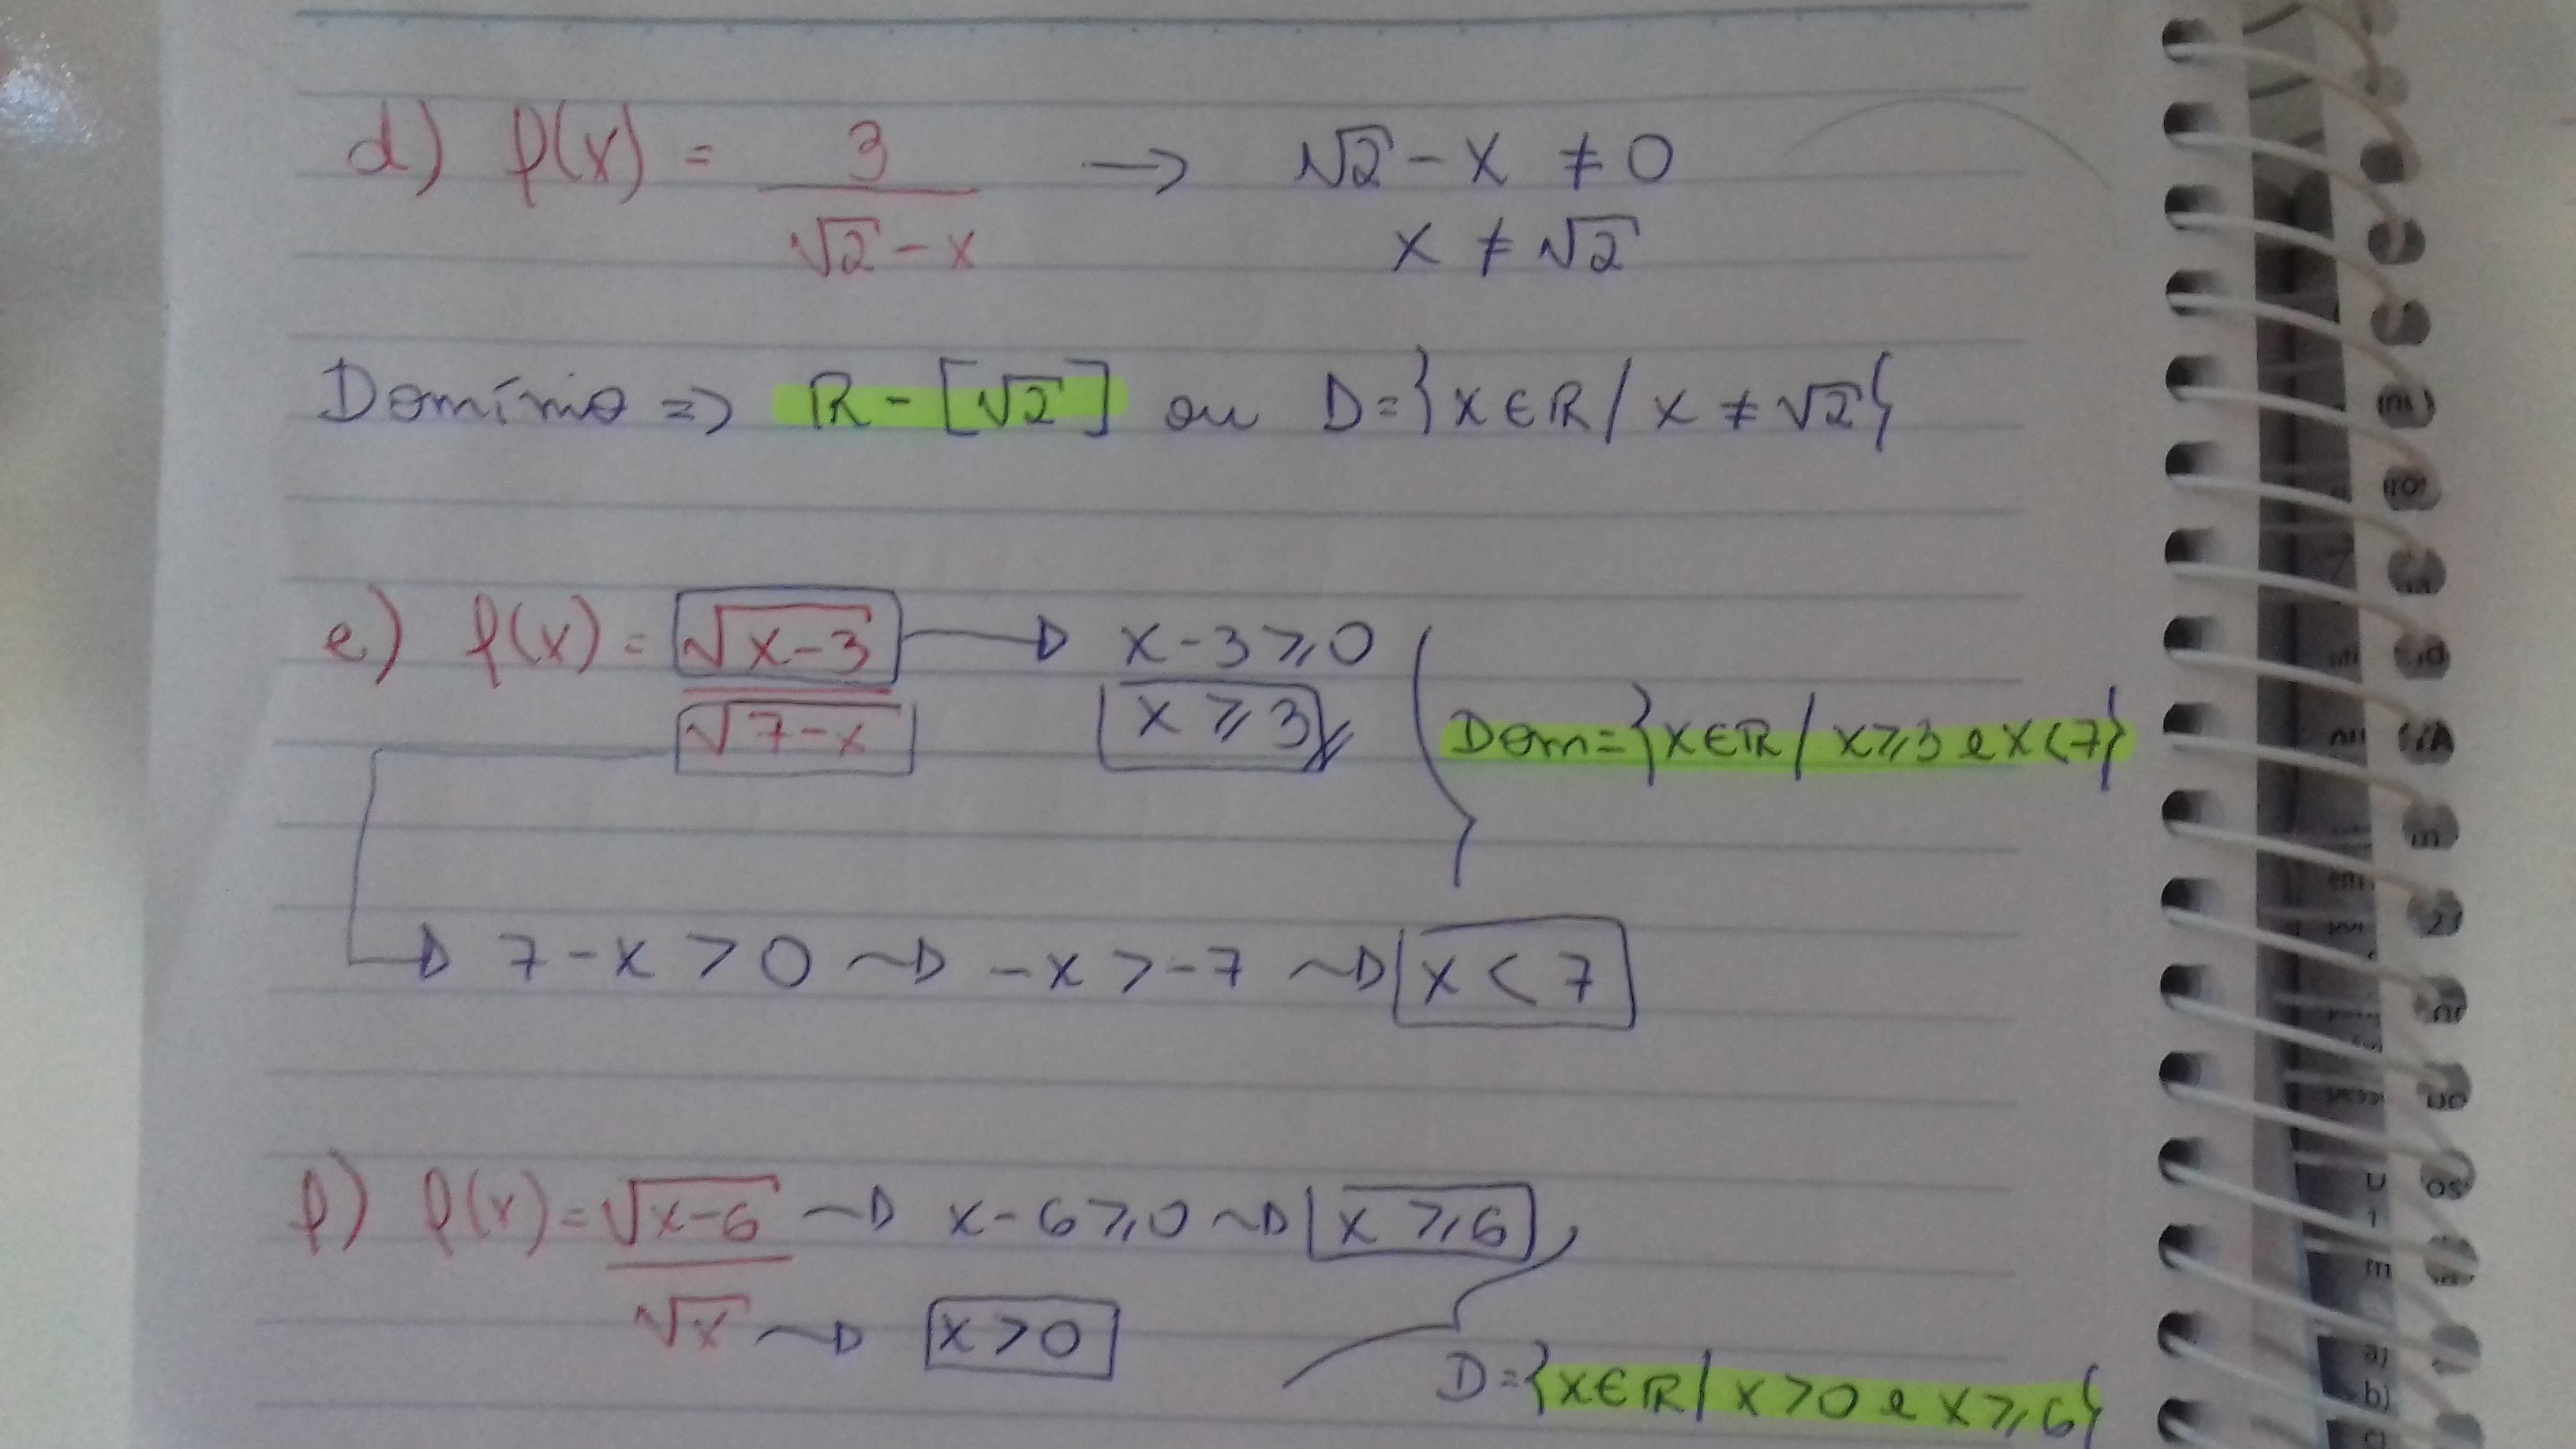 d) f(x) = 3 / √2 - x → √2 - x ≠ 0
x ≠ √2
Domínio => R - [√2] ou D = {x ∈ R / x ≠ √2}
e) f(x) = √x-3 / √7-x → x - 3 ≥ 0
x ≥ 3
Dom = {x ∈ R / x ≥ 3 e x < 7}
7 - x > 0 → -x > -7 → x < 7
f) f(x) = √x-6 / √x → x - 6 ≥ 0 → x ≥ 6
→ x > 0
D = {x ∈ R / x > 0 e x ≥ 6}
a)
b)